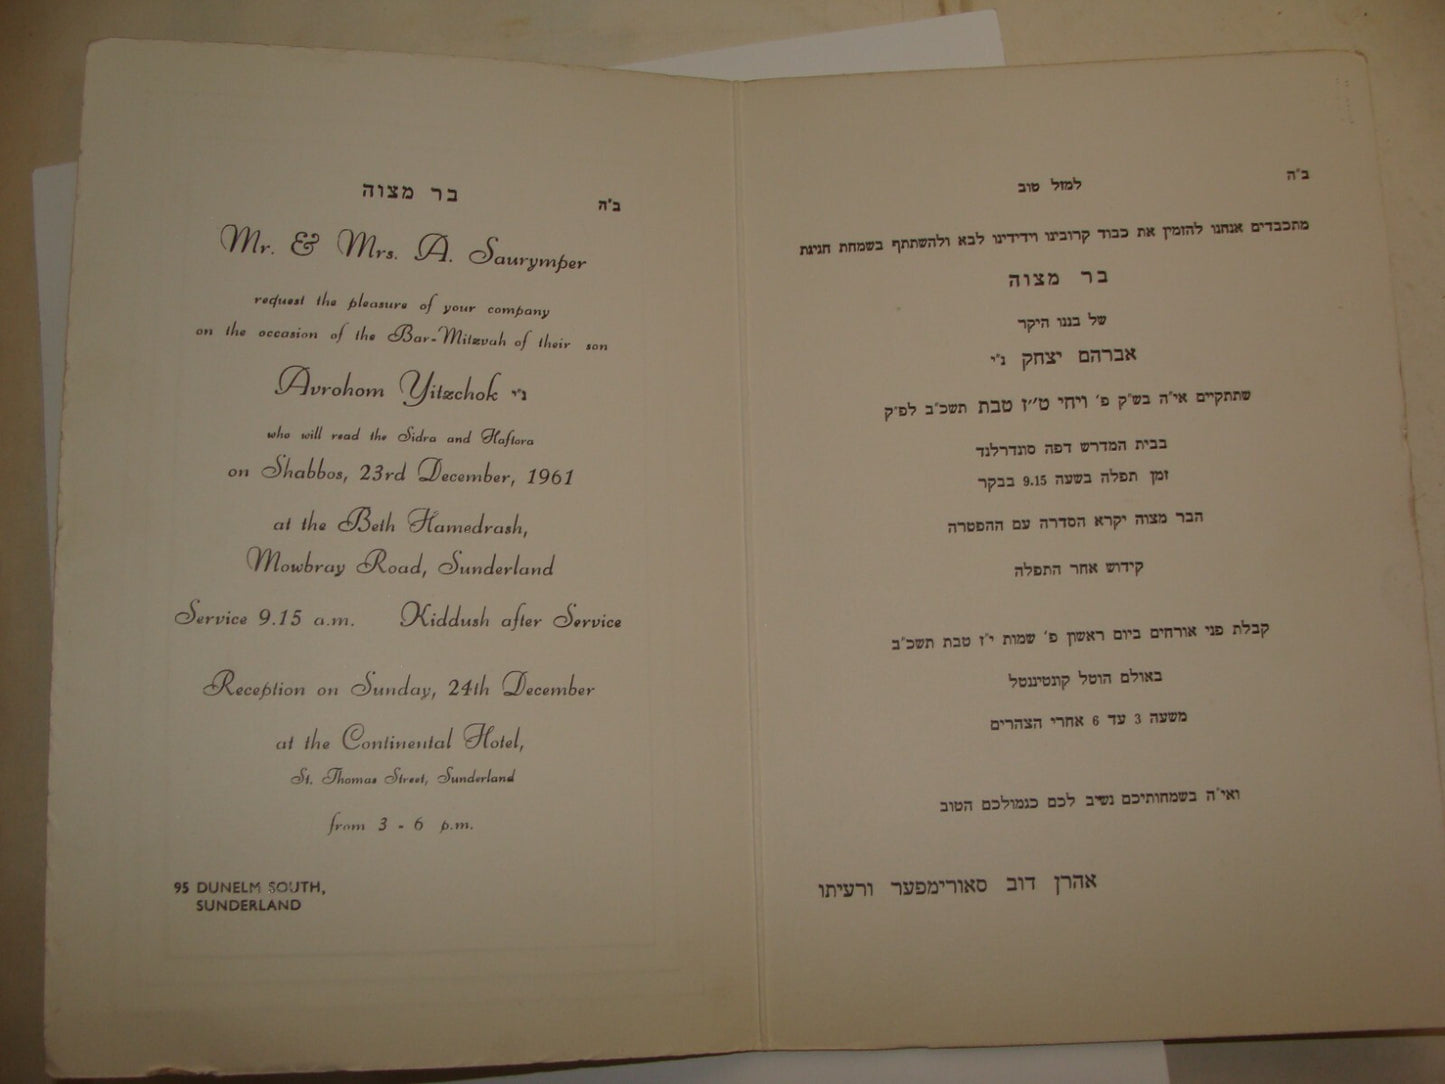 בר מצוה
ב"ה
Mr. & Mrs. A. Saurymper
request the pleasure of your company
on the occasion of the Bar-Mitzvah of their son
Avrohom Yitzchok נ"י
who will read the Sidra and Haftora
on Shabbos, 23rd December, 1961
at the Beth Hamedrash,
Mowbray Road, Sunderland
Service 9.15 a.m. Kiddush after Service
Reception on Sunday, 24th December
at the Continental Hotel,
St. Thomas Street, Sunderland
from 3 - 6 p.m.
95 DUNELM SOUTH,
SUNDERLAND
ב"ה
למזל טוב
מתכבדים אנחנו להזמין את כבוד קרובינו וידידינו לבא ולהשתתף בשמחת חגיגת
בר מצוה
של בננו היקר
אברהם יצחק נ"י
שתתקיים אי"ה בש"ק פ' ויחי ט"ז טבת תשכ"ב לפ"ק
בבית המדרש דפה סונדרלנד
זמן תפלה בשעה 9.15 בבקר
הבר מצוה יקרא הסדרה עם ההפטרה
קידוש אחר התפלה
קבלת פני אורחים ביום ראשון פ' שמות י"ז טבת תשכ"ב
באולם הוטל קונטיננטל
משעה 3 עד 6 אחרי הצהרים
ואי"ה בשמחותיכם נשיב לכם כגמולכם הטוב
אהרן דוב סאורימפער ורעיתו